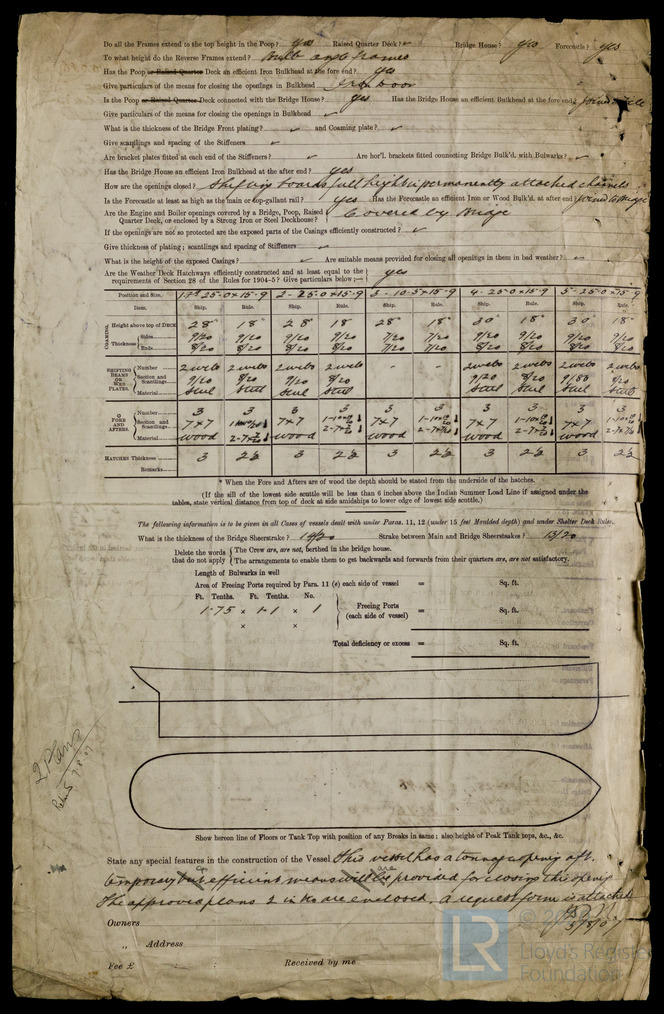 Do all the Frames extend to the top height in the Poop? yes Raised Quarter Deck? ✓ Bridge House? yes Forecastle? yes
To what height do the Reverse Frames extend? Bulb angle frames
Has the Poop or Raised Quarter Deck an efficient Iron Bulkhead at the fore end? yes
Give particulars of the means for closing the openings in Bulkhead Iron Door
Is the Poop or Raised Quarter Deck connected with the Bridge House? yes Has the Bridge House an efficient Iron Bulkhead at the fore end? Joined
Give particulars of the means for closing the openings in Bulkhead ✓
What is the thickness of the Bridge Front plating? ✓ and Coaming plate? ✓
Give scantlings and spacing of the Stiffeners ✓
Are bracket plates fitted at each end of the Stiffeners? ✓ Are hor'l. brackets fitted connecting Bridge Bulk'd. with Bulwarks? ✓
Has the Bridge House an efficient Iron Bulkhead at the after end? yes
How are the openings closed? Shifting boards full height in permanently attached channels
Is the Forecastle at least as high as the main or top-gallant rail? yes Has the Forecastle an efficient Iron or Wood Bulk'd. at after end? Joined to Bridge
Are the Engine and Boiler openings covered by a Bridge, Poop, Raised Quarter Deck, or enclosed by a Strong Iron or Steel Deckhouse? Covered by Bridge
If the openings are not so protected are the exposed parts of the Casings efficiently constructed? ✓
Give thickness of plating; scantlings and spacing of Stiffeners ✓
What is the height of the exposed Casings? ✓ Are suitable means provided for closing all openings in them in bad weather? ✓
Are the Weather Deck Hatchways efficiently constructed and at least equal to the requirements of Section 28 of the Rules for 1904-5? Give particulars below;— yes
Position and Size. 1- 25-0 x 15-9 2- 25-0 x 15-9 3- 10-5 x 15-9 4- 25-0 x 15-9 5- 25-0 x 15-9
Item. Ship. Rule. Ship. Rule. Ship. Rule. Ship. Rule. Ship. Rule.
COAMING. Height above top of DECK 28" 18" 28" 18" 28" 18" 30" 18" 30" 18"
Thickness Sides 9/20 9/20 9/20 9/20 7/20 7/20 9/20 9/20 9/20 9/20
Ends 8/20 8/20 8/20 8/20 7/20 7/20 8/20 8/20 8/20 8/20
SHIFTING BEAMS OR WEB PLATES. Number 2 webs 2 webs 2 webs 2 webs - - 2 webs 2 webs 2 webs 2 webs
Section and Scantlings 9/20 8/20 9/20 8/20 9/20 8/20 8/20
Material Steel Steel Steel Steel Steel Steel Steel Steel
FORE AND AFTERS. Number 3 3 3 3 3 3 3 3 3 3
Section and Scantlings 7x7 7x7 7x7 7x7 7x7
Material wood wood wood wood wood
HATCHES Thickness 3 2½ 3 2½ 3 2½ 3 2½ 3 2½
Remarks
* When the Fore and Afters are of wood the depth should be stated from the underside of the hatches.
(If the sill of the lowest side scuttle will be less than 6 inches above the Indian Summer Load Line if assigned under the
tables, state vertical distance from top of deck at side amidships to lower edge of lowest side scuttle.)
The following information is to be given in all Cases of vessels dealt with under Paras. 11, 12 (under 15 feet Moulded depth) and under Shelter Deck Rules.
What is the thickness of the Bridge Sheerstrake? Strake between Main and Bridge Sheerstrakes? 13/20
Delete the words that do not apply
The Crew are, are not, berthed in the bridge house.
The arrangements to enable them to get backwards and forwards from their quarters are, are not satisfactory.
Length of Bulwarks in well
Area of Freeing Ports required by Para. 11 (e) each side of vessel = Sq. ft.
Ft. Tenths. Ft. Tenths. No.
1.75 x 1.1 x 1 Freeing Ports (each side of vessel) = Sq. ft.
x x
Total deficiency or excess = Sq. ft.
2 Plans
7.8.07
Show hereon line of Floors or Tank Top with position of any Breaks in same; also height of Peak Tank tops, &c., &c.
State any special features in the construction of the Vessel This vessel has a tonnage opening aft.
temporary but efficient means will be are provided for closing the opening
The approved plans 2 in No are enclosed. A request form is attached
Owners
„ Address
Fee £ Received by me
LR © Lloyd's Register Foundation